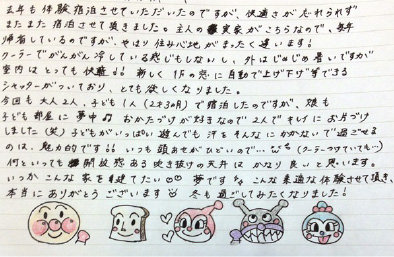 去年も体験宿泊させていただいたのですが、快適さが忘れられず
また また 宿泊させて頂きました。主人の実家がこちらなので、毎年
帰省しているのですが、やはり 住み心地が まったく違います!
クーラーでがんがん冷している感じもしないし、外はじめじめ暑いですが
室内は とっても快適!! 新しく1Fの窓に自動で上げ下げ等できる
シャッターがついており、とても欲しくなりました。
今回も 大人2人、子ども1人(2才3ヶ月)で宿泊したのですが、娘も
子ども部屋に夢中♫ おかたづけが好きなので 2人でキレイにお片づけ
しました(笑) 子どもがいっぱい遊んでも 汗をそんなにかかないで過ごせる
のは、魅力的です!! いつも頭あせがひどいので…(クーラーつけていても…)
何といっても開放感ある吹き抜けの天井は かなり良いと思います。
いつか、こんな家を建てたい 夢です こんな素適な体験させて頂き、
本当に ありがとう ございます 冬も過ごしてみたくなりました!